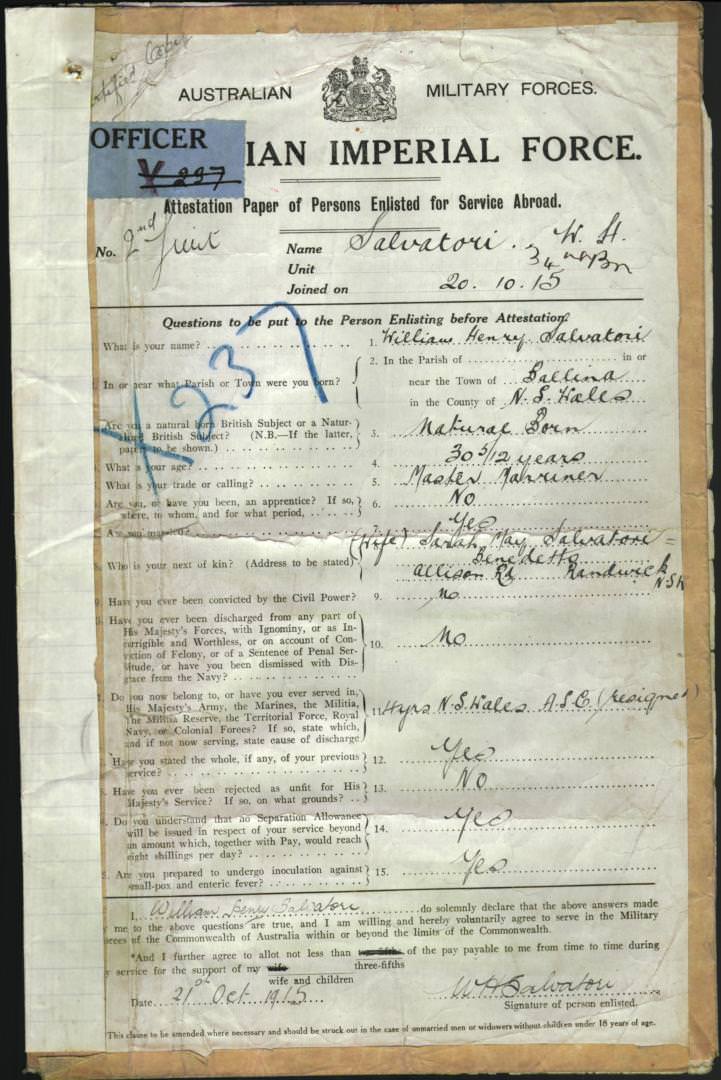 Certified Copy
AUSTRALIAN MILITARY FORCES.
OFFICER
Y 237
IAN IMPERIAL FORCE.
Attestation Paper of Persons Enlisted for Service Abroad.
No. 2nd Lieut
Name Salvatori. W. H.
Unit 34 Bn
Joined on 20. 10. 15
Questions to be put to the Person Enlisting before Attestation.
Y 237
What is your name? 1. William Henry Salvatori
In or near what Parish or Town were you born? 2. In the Parish of in or
near the Town of Ballina
in the County of N. S. Wales
Are you a natural born British Subject or a Natur-
alised British Subject? (N.B.—If the latter,
papers to be shown.) 3. Natural Born
What is your age? 4. 30 5/12 years
What is your trade or calling? 5. Master Marriner
Are you, or have you been, an apprentice? If so,
where, to whom, and for what period, 6. No
Are you married? 7. Yes
8. Who is your next of kin? (Address to be stated) (Wife) Sarah May Salvatori =
Benedetto
Allison Rd Randwick
N.S.W
9. Have you ever been convicted by the Civil Power? 9. No
Have you ever been discharged from any part of
His Majesty's Forces, with Ignominy, or as In-
corrigible and Worthless, or on account of Con-
viction of Felony, or of a Sentence of Penal Ser-
vitude, or have you been dismissed with Dis-
grace from the Navy? 10. No
Do you now belong to, or have you ever served in,
His Majesty's Army, the Marines, the Militia,
the Militia Reserve, the Territorial Force, Royal
Navy, or Colonial Forces? If so, state which,
and if not now serving, state cause of discharge 11. 4yrs N. S. Wales A.S.C. (resigned)
Have you stated the whole, if any, of your previous
service? 12. Yes
Have you ever been rejected as unfit for His
Majesty's Service? If so, on what grounds? 13. No
Do you understand that no Separation Allowance
will be issued in respect of your service beyond
an amount which, together with Pay, would reach
eight shillings per day? 14. Yes
Are you prepared to undergo inoculation against
small-pox and enteric fever? 15. Yes
I, William Henry Salvatori do solemnly declare that the above answers made
by me to the above questions are true, and I am willing and hereby voluntarily agree to serve in the Military
Forces of the Commonwealth of Australia within or beyond the limits of the Commonwealth.
*And I further agree to allot not less than two-fifths of the pay payable to me from time to time during
three-fifths
my service for the support of my wife
wife and children
Date 21st Oct 1915 W H Salvatori
Signature of person enlisted.
*This clause to be amended where necessary and should be struck out in the case of unmarried men or widowers without children under 18 years of age.